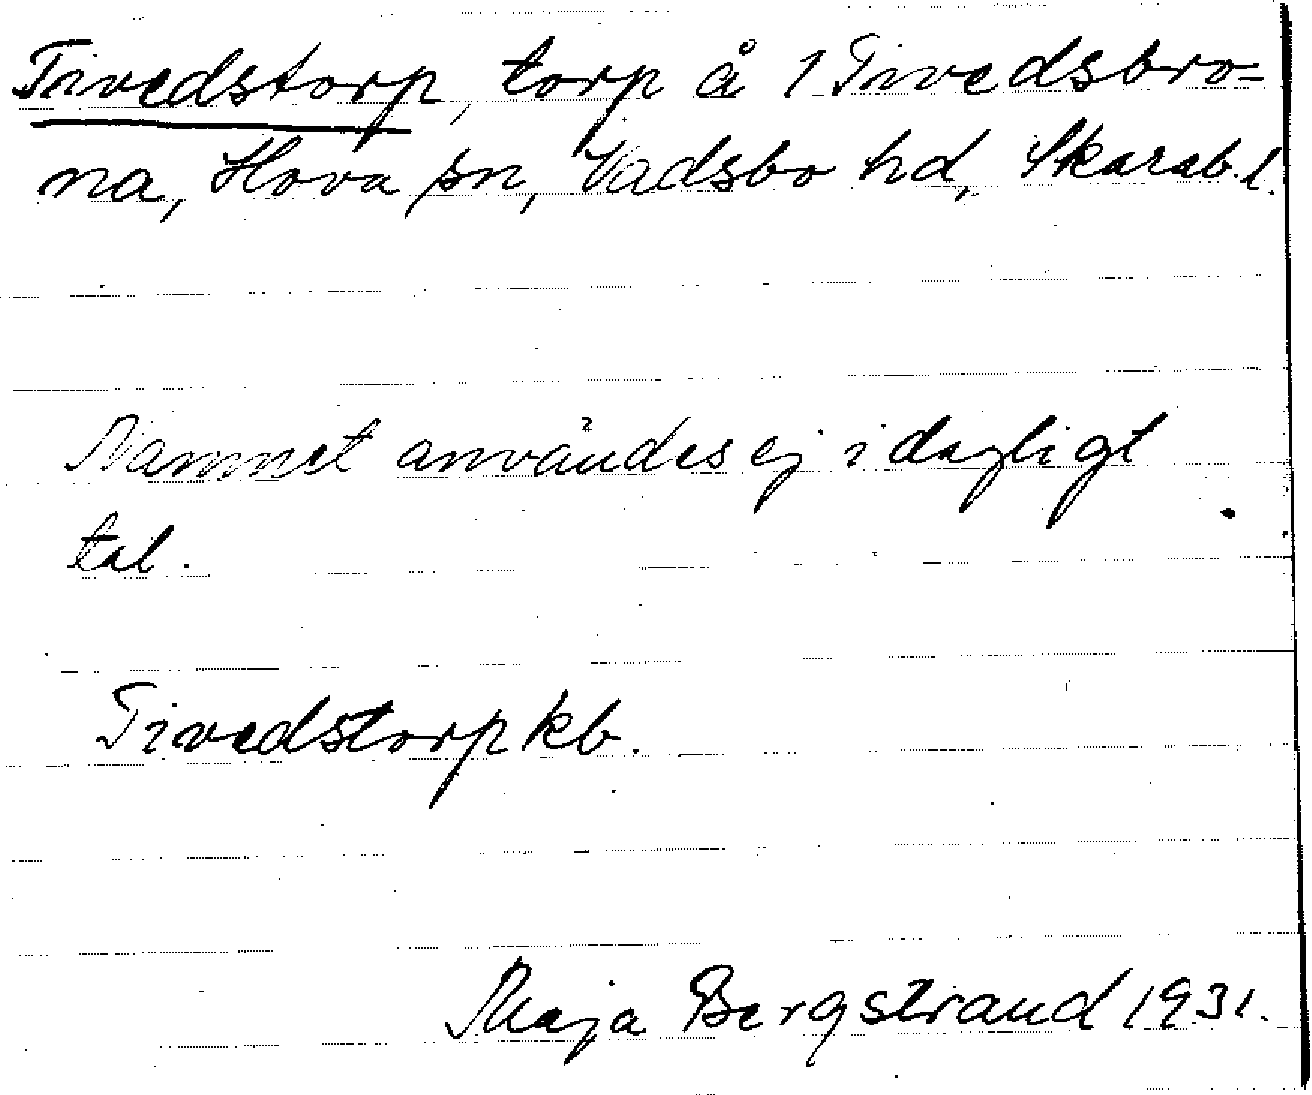 Tivedstorp, torp å 1 Tivedsbro=
na, Hova sn, Vadsbo hd, Skarab. l.
Namnet användes ej i dagligt
tal.
Tivedstorp kb.
Maja Bergstrand 1931.